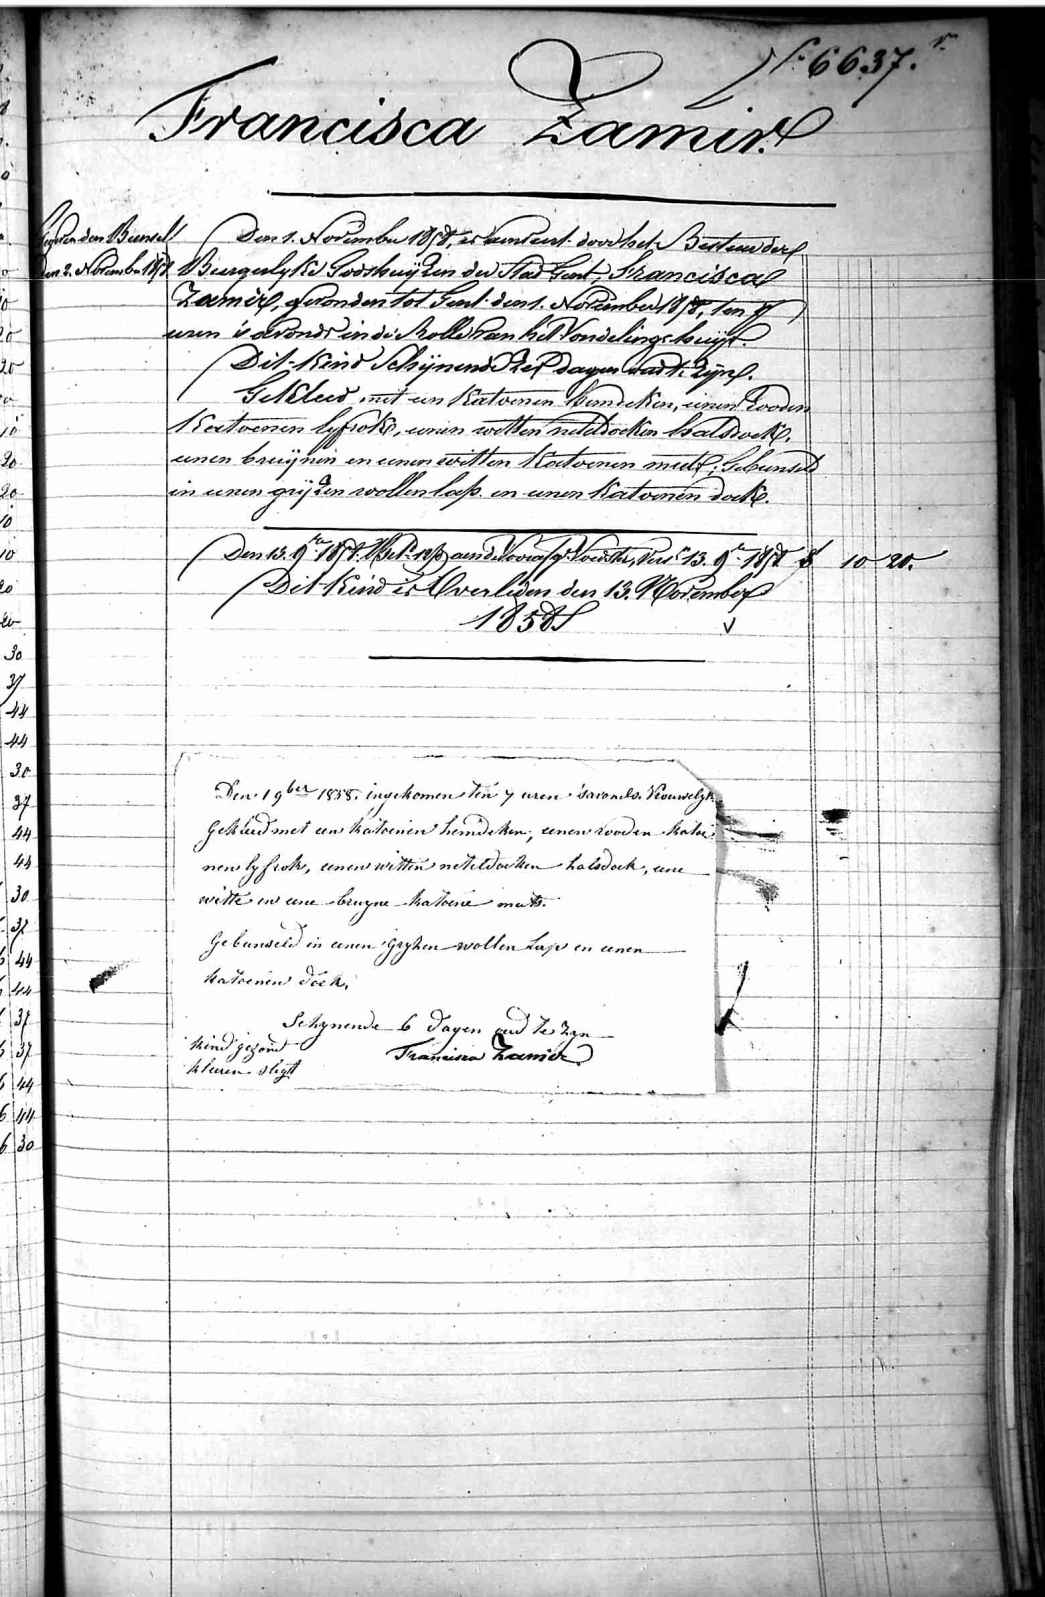 N.º 6637. r.
Francisca Zamir.
Gegeven den Bunsel
den 2. November 1858
Den 1. November 1858, is aenveert door het Bestuer der
Burgerlyke Godshuyzen der Stad Gent, Francisca
Zamir, gevonden tot Gent den 1. November 1858, ten 7
uren 's avonds in de Rolle van het Vondelingshuys.
Dit Kind Schijnende zes dagen oud te zijn.
Gekleed met een Katoenen hemdeken, eenen rooden
Katoenen lyfrok, eenen witten neteldoeken halsdoek,
eenen bruijnen en eenen witten Katoenen muts; Gebunseld
in eenen grijzen wollen lap en eenen Katoenen doek.
Den 13. 9.ber 1858. aen de Voedster, 13. 9.ber 1858 10 20.
Dit Kind is Overleden den 13. November
1858
Den 1 9ber 1858. ingekomen ten 7 uren 's avonds. Vrouwelyk
Gekleed met een katoenen hemdeken, eenen rooden katoe
nen lyfrok, eenen witten neteldoeken halsdoek, eene
witte en eene bruyne katoene muts.
Gebunseld in eenen gryzen wollen lap en eenen
katoenen doek.
Schynende 6 dagen oud te zyn
kind gezond
kleeren slegt
Francisca Zamir
30
37
44
44
30
37
44
44
30
37
44
44
37
37
44
44
30